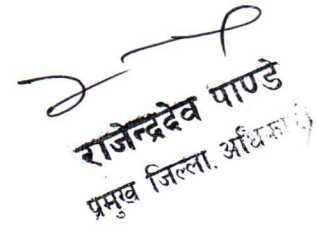 राजेन्द्रदेव पाण्डे
प्रमुख जिल्ला.